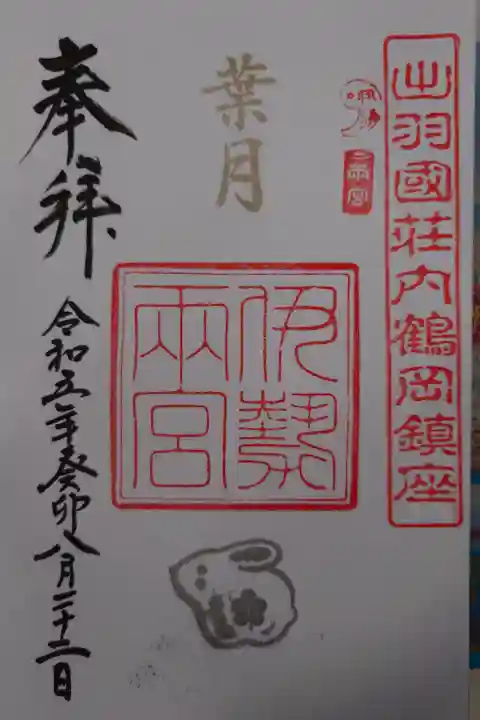 出羽國荘内鶴岡鎮座
葉月
伊勢
兩宮
奉拝
令和五年癸卯八月二十二日